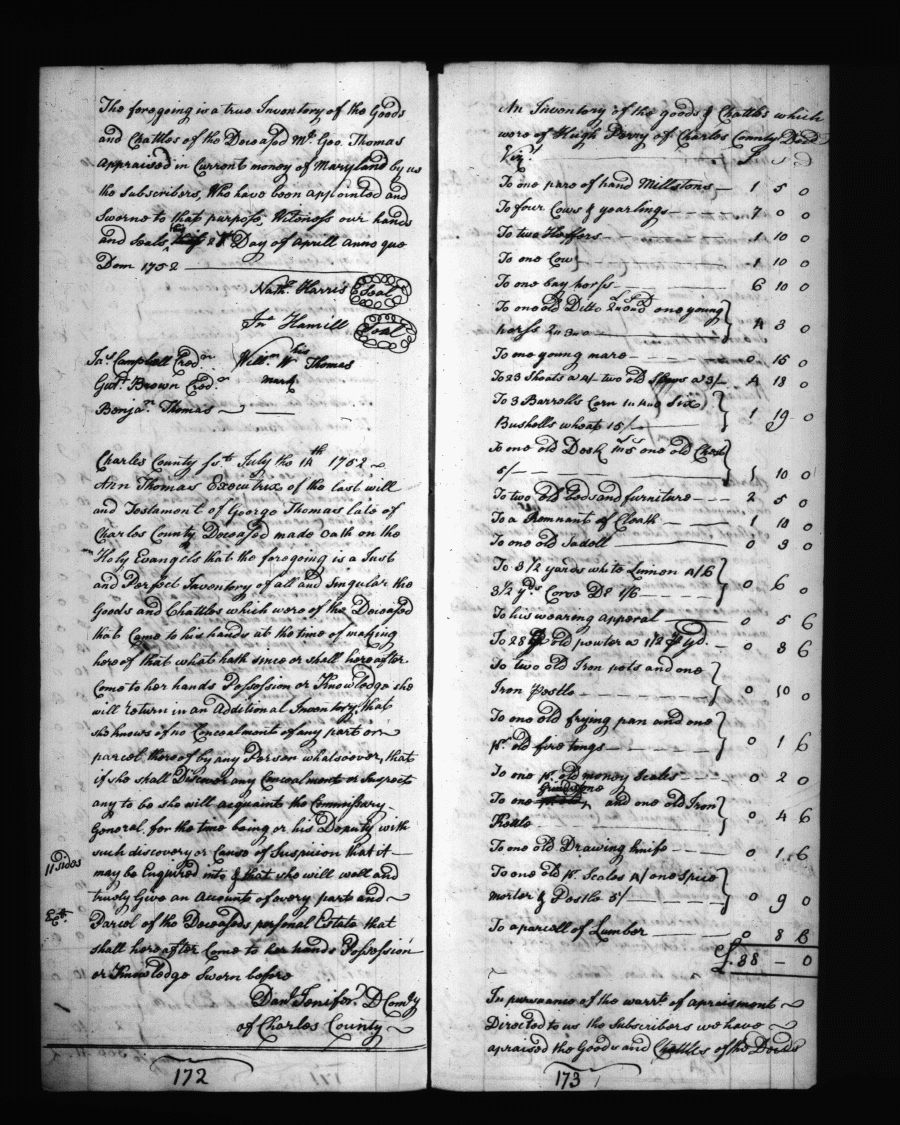 The foregoing is a true Inventory of the Goods
and Chattles of the Deceased Mr. Geo. Thomas
Appraised in Current money of Maryland by us
the Subscribers, Who have been appointed and
Sworne to that purpose, Witness our hands
and Seals this 28 Day of Aprill Anno que
Dom 1752
Nath. Harris Seal
Jno. Hamill Seal
Jas. Campbell Cred.or Will.m his W Thomas
Gust. Brown Cred.or mark
Benja. Thomas
Charles County Sst. July the 14th 1752
Ann Thomas Executrix of the last will
and Testament of George Thomas late of
Charles County Deceased made Oath on the
Holy Evangels that the foregoing is a Just
and Perfect Inventory of all and Singular the
Goods and Chattles which were of the Deceased
that Came to his hands at the time of making
hereof that what hath since or shall hereafter
Come to her hands Possession or Knowledge she
will return in an Additional Inventory, that
she knows of no Concealment of any part or
parcel thereof by any Person whatsoever, that
if she shall Discover any Concealment or Suspects
any to be she will acquaint the Commissary
General for the time being or his Deputy with
such discovery or Cause of Suspicion that it
11 sides
may be Enquired into & that she will well and
truely Give an Account of every part and
Ext.
Parcel of the Deceaseds personal Estate that
shall hereafter Come to her hands Possession
or Knowledge Sworn before
Danl. Jenifer D Com.ry
of Charles County
172
An Inventory of the goods & Chattles which
were of Hugh Perry of Charles County Decd.
Viz. £ s D
To one pare of hand Millstons 1 5 0
To four Cows & yearlings 7 0 0
To two Heffers 1 10 0
To one Cow 1 10 0
To one bay horss 6 10 0
To one old Ditto one young
horss 4 3 0
To one young mare 0 15 0
To 23 Shoats a 4/ two old Sows a 3/ 4 18 0
To 3 Barrells Corn Six
Bushells wheat 15/ 1 19 0
To one old Desk one old Chest
5/ 1 10 0
To two old beds and furniture 2 5 0
To a Remnant of Cloath 1 10 0
To one old Sadell 0 3 0
To 3 1/2 yards white Linnen a 1/6
3 1/2 yds Corse Do 1/6 0 6 0
To his wearing apperal 0 5 6
To 28 old pewter a 0 8 6
To two old Iron pots and one
Iron Pestle 0 10 0
To one old frying pan and one
pr. old fire tongs 0 1 6
To one pr. old money Scales 0 2 0
Grindstone
To one and one old Iron
Kettle 0 4 6
To one old Drawing knife 0 1 6
To one old pr. Scales 4/ one Spice
morter & Pestle 5/ 0 9 0
To a parcell of Lumber 0 8 6
£ 38 - 0
In pursuance of the warrt. of apraisment
Directed to us the Subscribers we have
apraised the Goods and Chattles of the Deceds
173